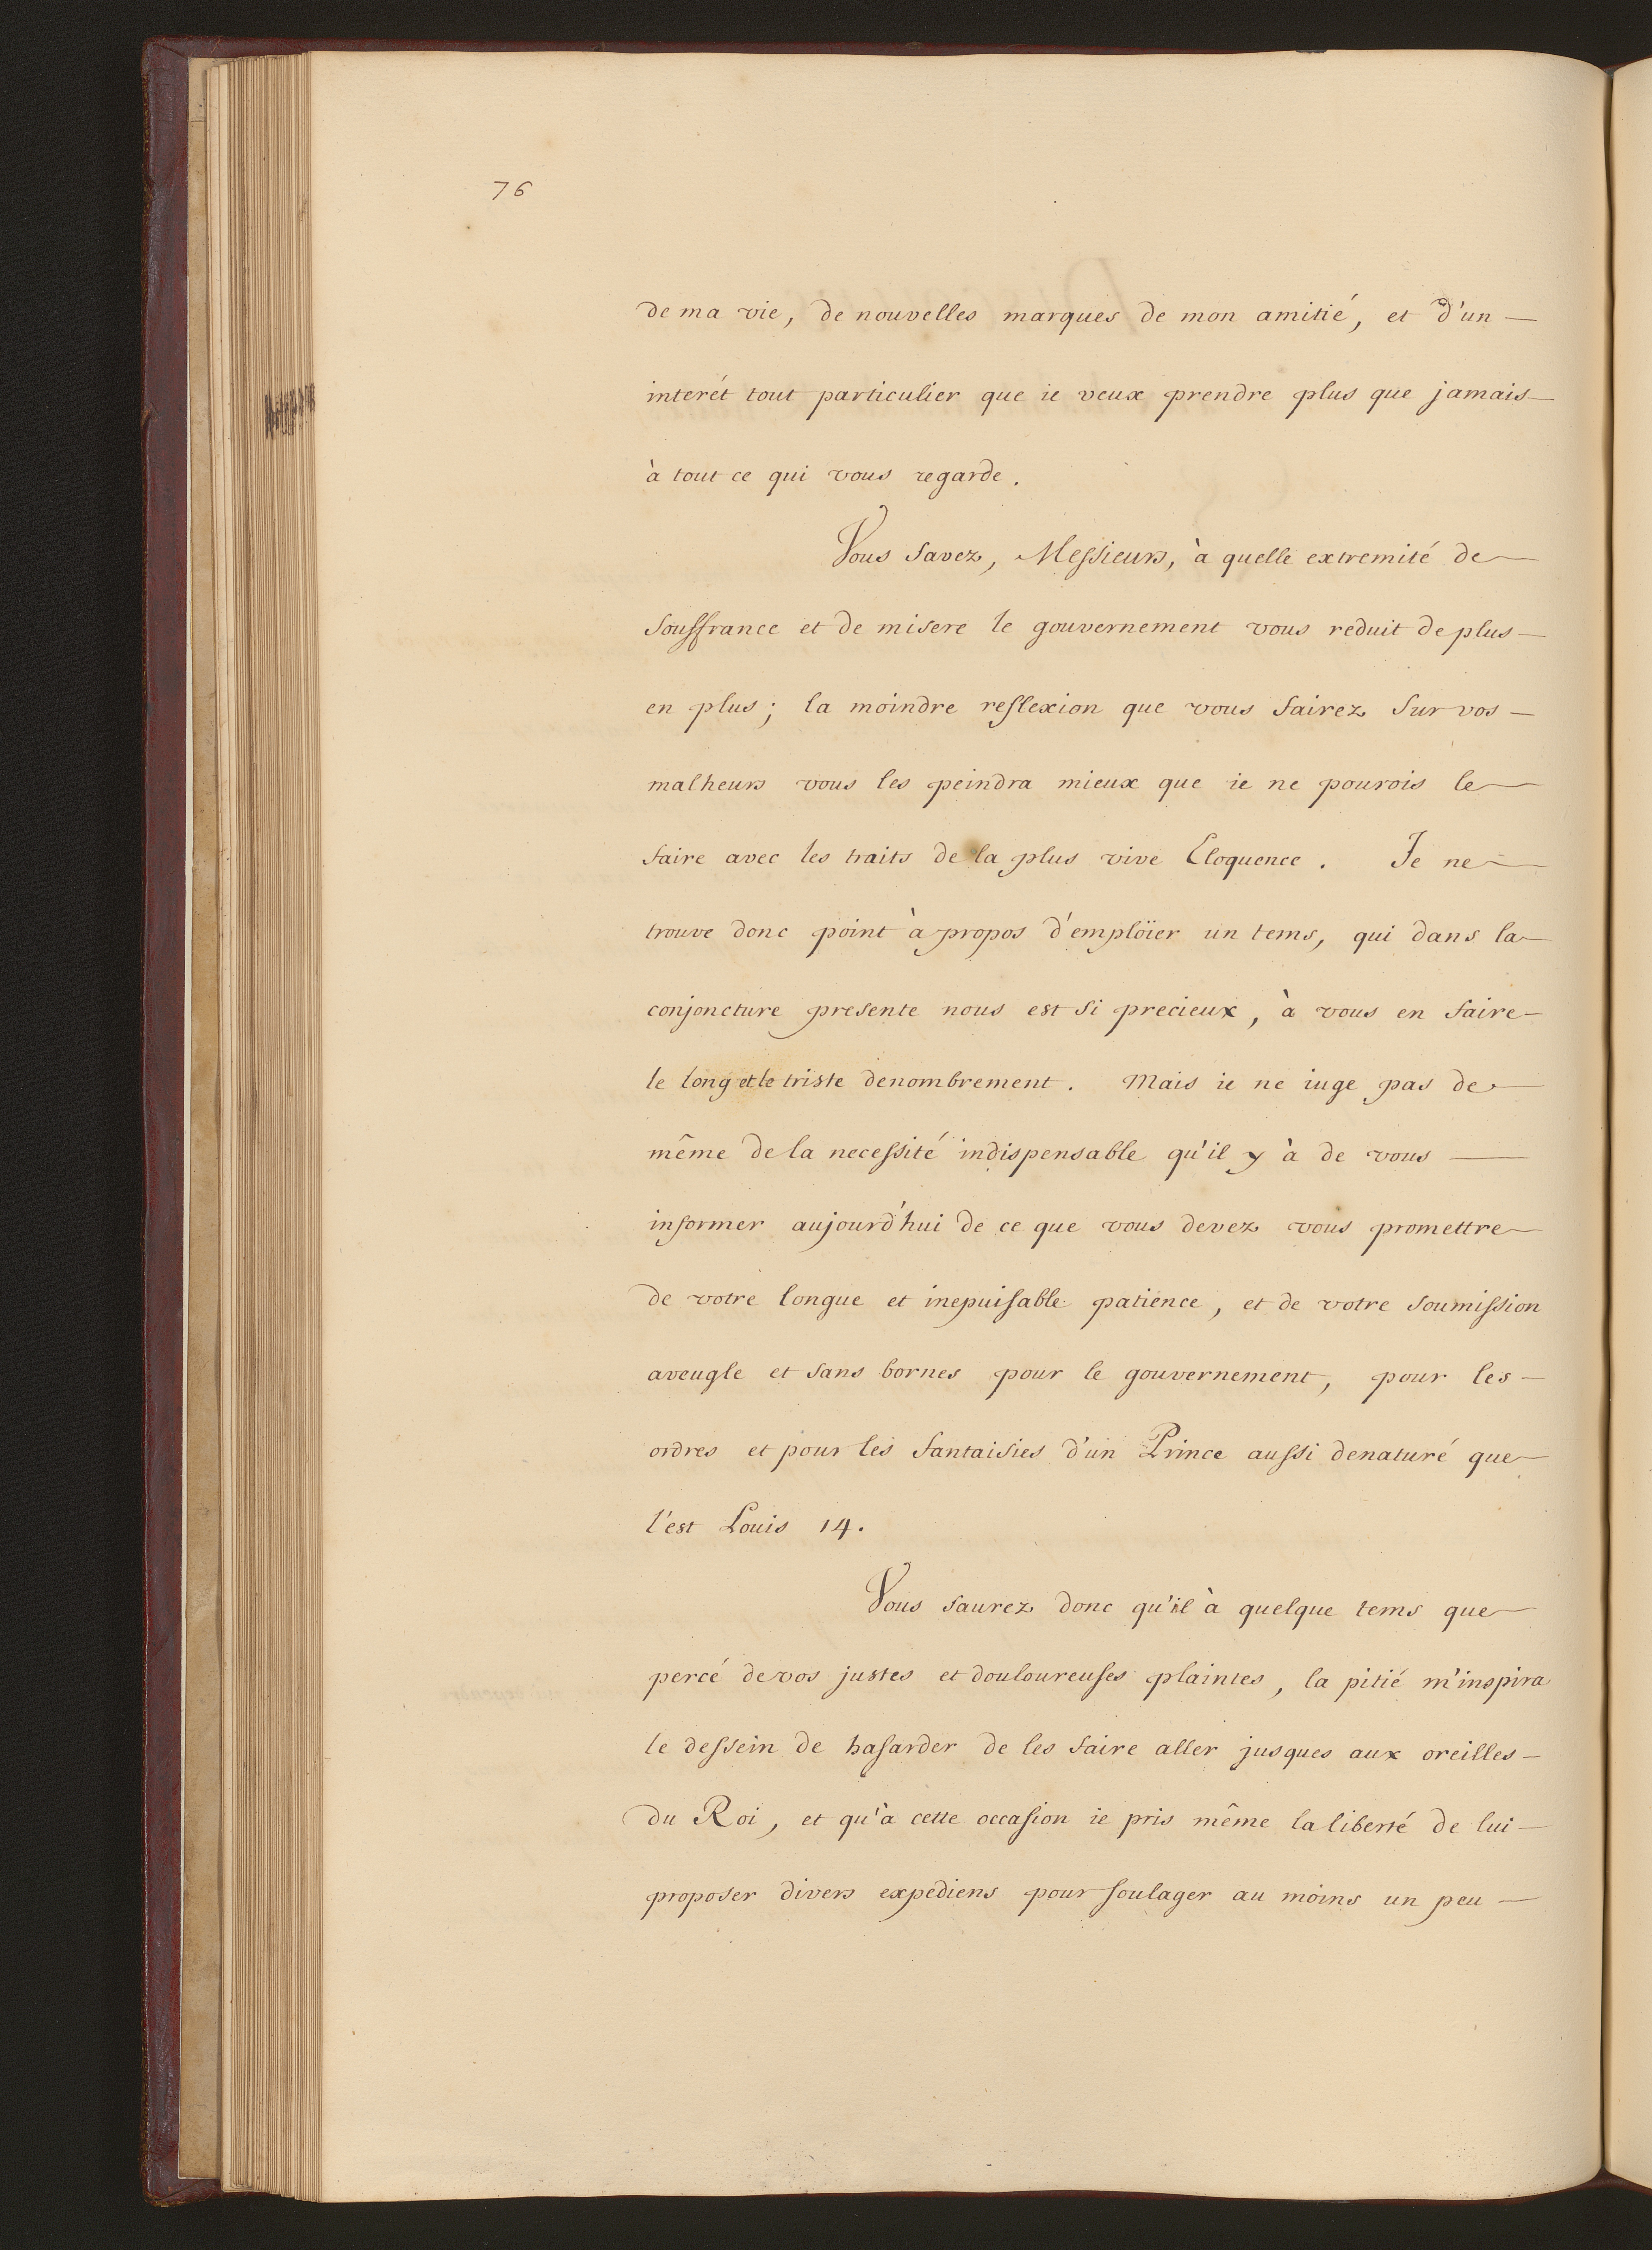 76
de ma vie, de nouvelles marques de mon amitié, et d'un —
interêt tout particulier que ie veux prendre plus que jamais —
à tout ce qui vous regarde.
Vous savez, Messieurs, à quelle extremité de
souffrance et de misere le gouvernement vous reduit de plus —
en plus; la moindre reflexion que vous fairez sur vos —
malheurs vous les peindra mieux que ie ne pourois le
faire avec les traits de la plus vive Eloquence. Je ne
trouve donc point à propos d'emplöier un tems, qui dans la
conjoncture presente nous est si precieux, à vous en faire —
le long et le triste denombrement. Mais ie ne iuge pas de
même de la necessité indispensable qu'il y à de vous —
informer aujourd'hui de ce que vous devez vous promettre
de votre longue et inepuisable patience, et de votre soumission
aveugle et sans bornes pour le gouvernement, pour les —
ordres et pour les fantaisies d'un Prince aussi denaturé que
l'est Louis 14.
Vous saurez donc qu'il à quelque tems que
percé de vos justes et douloureuses plaintes, la pitié m'inspira
le dessein de hasarder de les faire aller jusques aux oreilles —
du Roi, et qu'à cette occasion ie pris même la liberté de lui —
proposer divers expediens pour soulager au moins un peu —